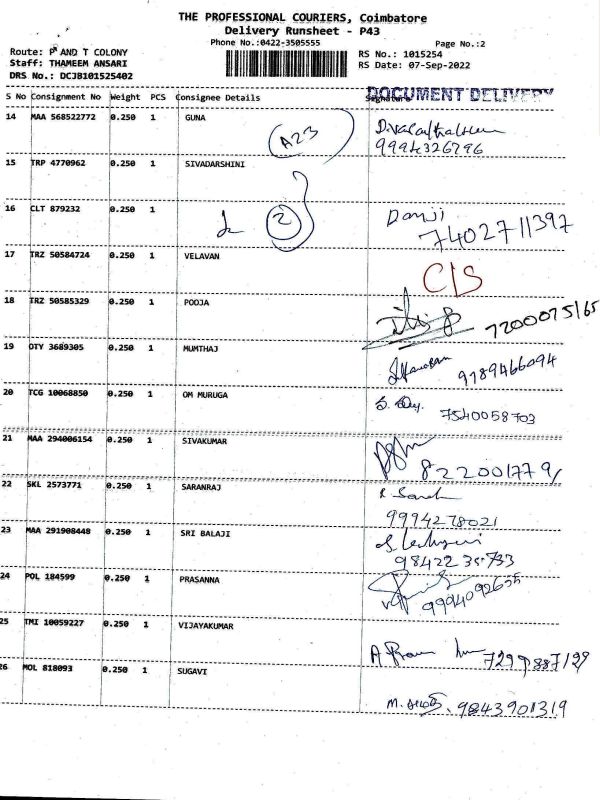 THE PROFESSIONAL COURIERS, Coimbatore
Delivery Runsheet - P43
Phone No.:0422-3505555
Page No.:2
Route: P AND T COLONY
RS No.: 1015254
Staff: THAMEEM ANSARI
RS Date: 07-Sep-2022
DRS No.: DCJB101525402
DOCUMENT DELIVERY
S No Consignment No Weight PCS Consignee Details Signature
14 MAA 568522772 0.250 1 GUNA
A23
9994326796
15 TRP 4770962 0.250 1 SIVADARSHINI
16 CLT 879232 0.250 1
2
Danji
7402711397
17 TRZ 50584724 0.250 1 VELAVAN
C/S
18 TRZ 50585329 0.250 1 POOJA
7200075165
19 OTY 3689305 0.250 1 MUMTHAJ
9789466094
20 TCG 10068850 0.250 1 OM MURUGA
7540058703
21 MAA 294006154 0.250 1 SIVAKUMAR
822001779
22 SKL 2573771 0.250 1 SARANRAJ
9994278021
23 MAA 291908448 0.250 1 SRI BALAJI
9842235733
24 POL 184599 0.250 1 PRASANNA
9994092655
25 TMI 10059227 0.250 1 VIJAYAKUMAR
7299887129
26 MOL 818093 0.250 1 SUGAVI
9843901319